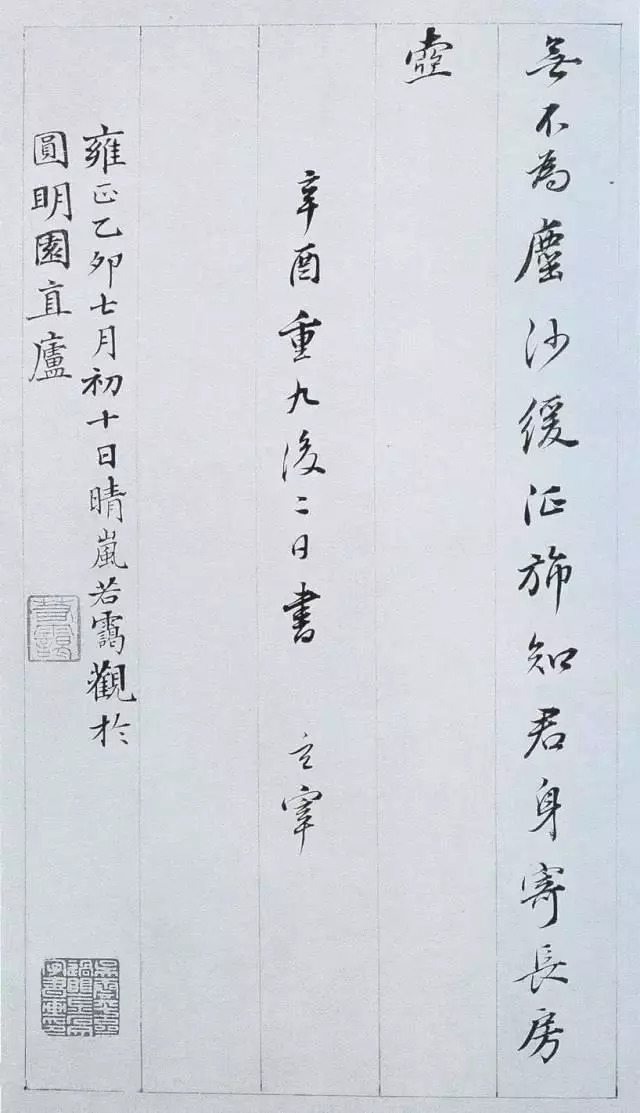 無不為塵沙緩征旆知君身寄長房
壺
辛酉重九後二日書 玄宰
雍正乙卯七月初十日晴嵐若靄觀於
圓明園直廬
若靄